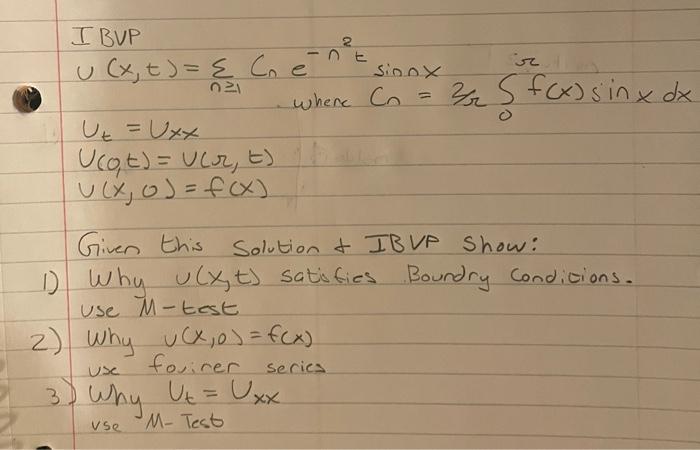 IBVP
U(x,t) = Σ n≥1 Cn e^-n²t sinnx
where Cn = 2/π ∫0^π f(x) sin x dx
Ut = Uxx
U(0,t) = U(π, t)
U(x, 0) = f(x)
Given this solution & IBVP show:
1) Why U(x,t) satisfies Boundry Conditions.
use M-test
2) Why U(x,0) = f(x)
use fouirer series
3) Why Ut = Uxx
use M-Test